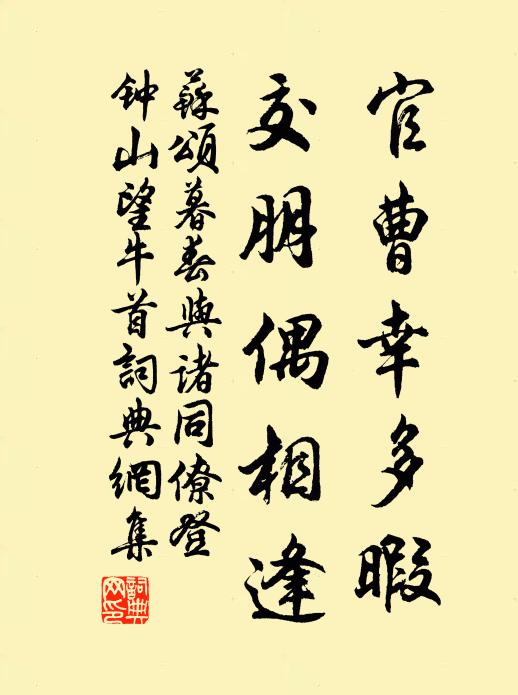 官曹幸多暇
交朋偶相逢
蘇頌暮春與诸同僚登
钟山望牛首詞典網集
詞典
网印